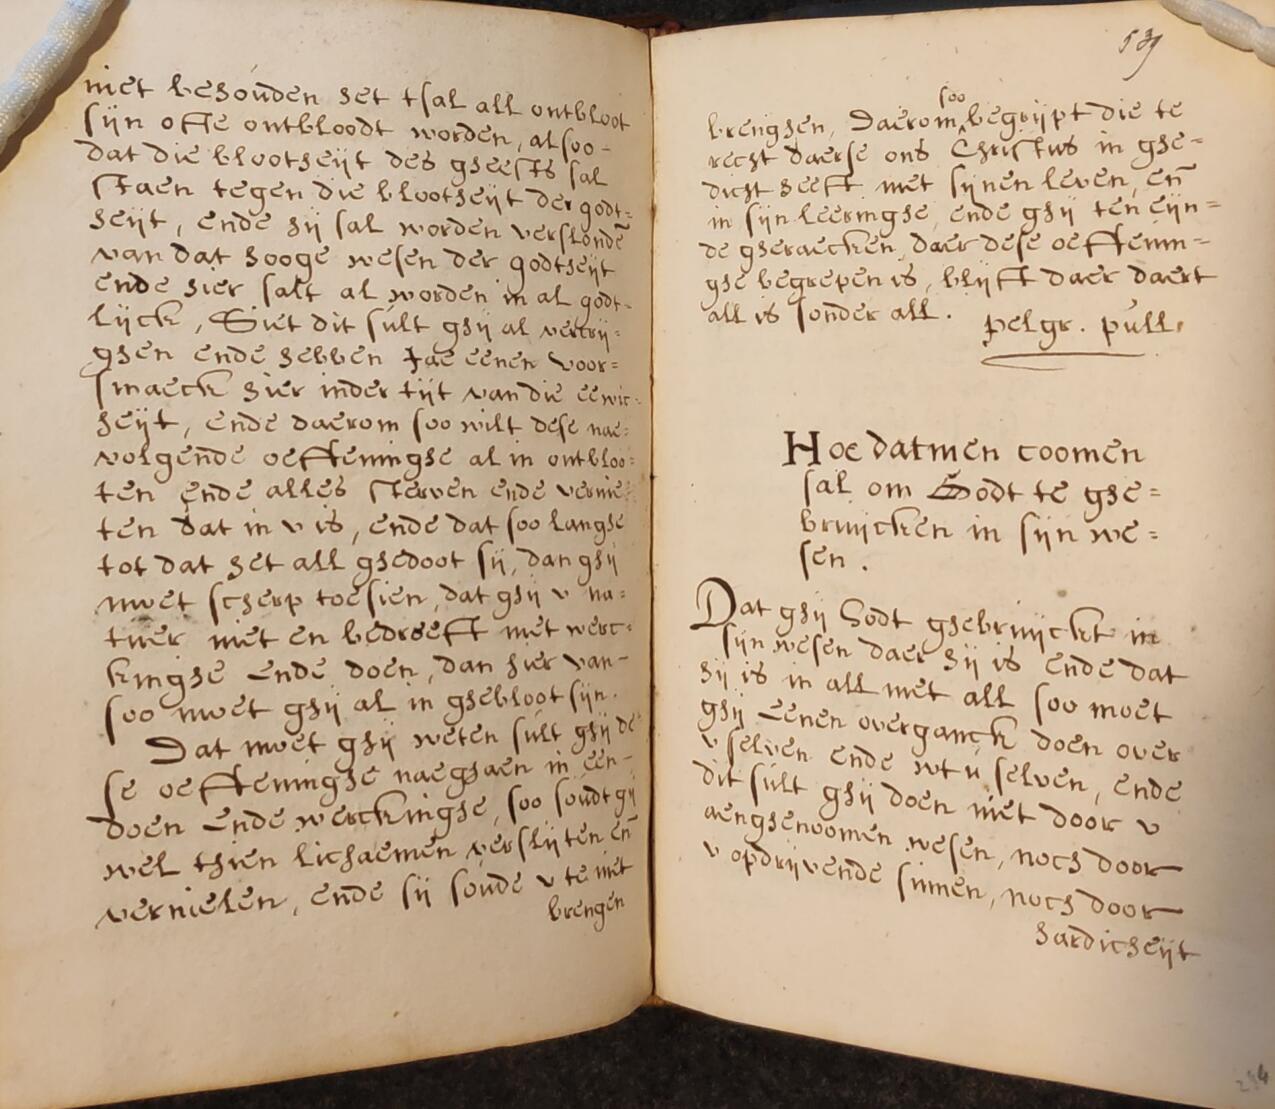 niet behouden het tsal all ontbloot
sijn ofte ontbloodt worden, al soo-
dat die blootheijt des gheests sal
staen tegen die blootheijt der godt=
heijt, ende hij sal worden verslondē
van dat hooge wesen der godtheijt
ende hier salt al worden in al godt-
lijck, Siet dit sult ghij al vercrij=
ghen ende hebben Jae eenen voor=
smaeck hier inder tijt van die eewic=
heijt, ende daerom soo wilt dese nae=
volgende oeffeninghe al in ontbloo=
ten ende alles sterven ende vernie=
ten dat in v is, ende dat soo langhe
tot dat het all ghedoot sij, dan ghij
moet scherp toesien, dat ghij v na=
tuer niet en bedroeft met werc=
kinghe Ende doen, dan hier van-
soo moet ghij al in ghebloot sijn.
Dat moet ghij weten sult ghij de
se oeffeninghe naeghaen in een-
doen Ende werckinghe, soo soudt gij
wel thien lichaemen verslijten eñ
vernielen, ende sij soude v te niet
brengen
539
brenghen, Daerom soo begrijpt die te
recht daerse ons Christus in ghe=
dicht heeft met sijnen leven, eñ
in sijn leeringhe, ende ghij ten eijn=
de gheraecken, daer dese oeffenin=
ghe begrepen is, blijft daer daert
all is sonder all.
pelgr. pull.
Hoe datmen coomen
sal om Godt te ghe=
bruijcken in sijn we=
sen.
Dat ghij Godt ghebruijckt in
sijn wesen daer hij is ende dat
hij is in all met all soo moet
ghij Eenen overganck doen over
v selven ende wt u selven, ende
dit sult ghij doen niet door v
aenghenoomen wesen, noch door
v opdrijvende sinnen, noch door
hardicheijt